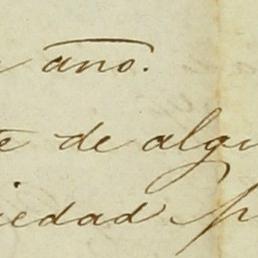 año.
te de algu
iedad p